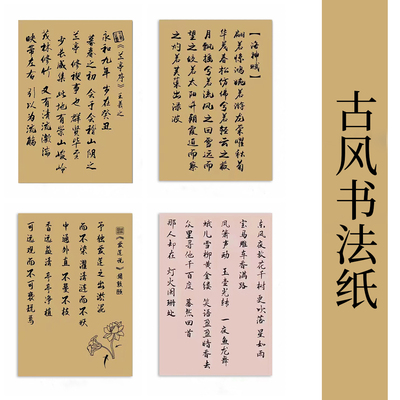 《兰亭序》王羲之
永和九年 岁在癸丑
暮春之初 会于会稽山阴之
兰亭 修禊事也 群贤毕至
少长咸集 此地有崇山峻岭
茂林修竹 又有清流激湍
映带左右 引以为流觞
【洛神赋】
翩若惊鸿 婉若游龙 荣曜秋菊
华茂春松 仿佛兮若轻云之蔽
月 飘摇兮若流风之回雪 远而
望之 皎若太阳升朝霞 迫而察
之 灼若芙蕖出渌波
古风书法纸
《爱莲说》周敦颐
予独爱莲之出淤泥
而不染 濯清涟而不妖
中通外直 不蔓不枝
香远益清 亭亭净植
可远观而不可亵玩焉
东风夜放花千树 更吹落星如雨
宝马雕车香满路
凤箫声动 玉壶光转 一夜鱼龙舞
蛾儿雪柳黄金缕 笑语盈盈暗香去
众里寻他千百度 蓦然回首
那人却在 灯火阑珊处